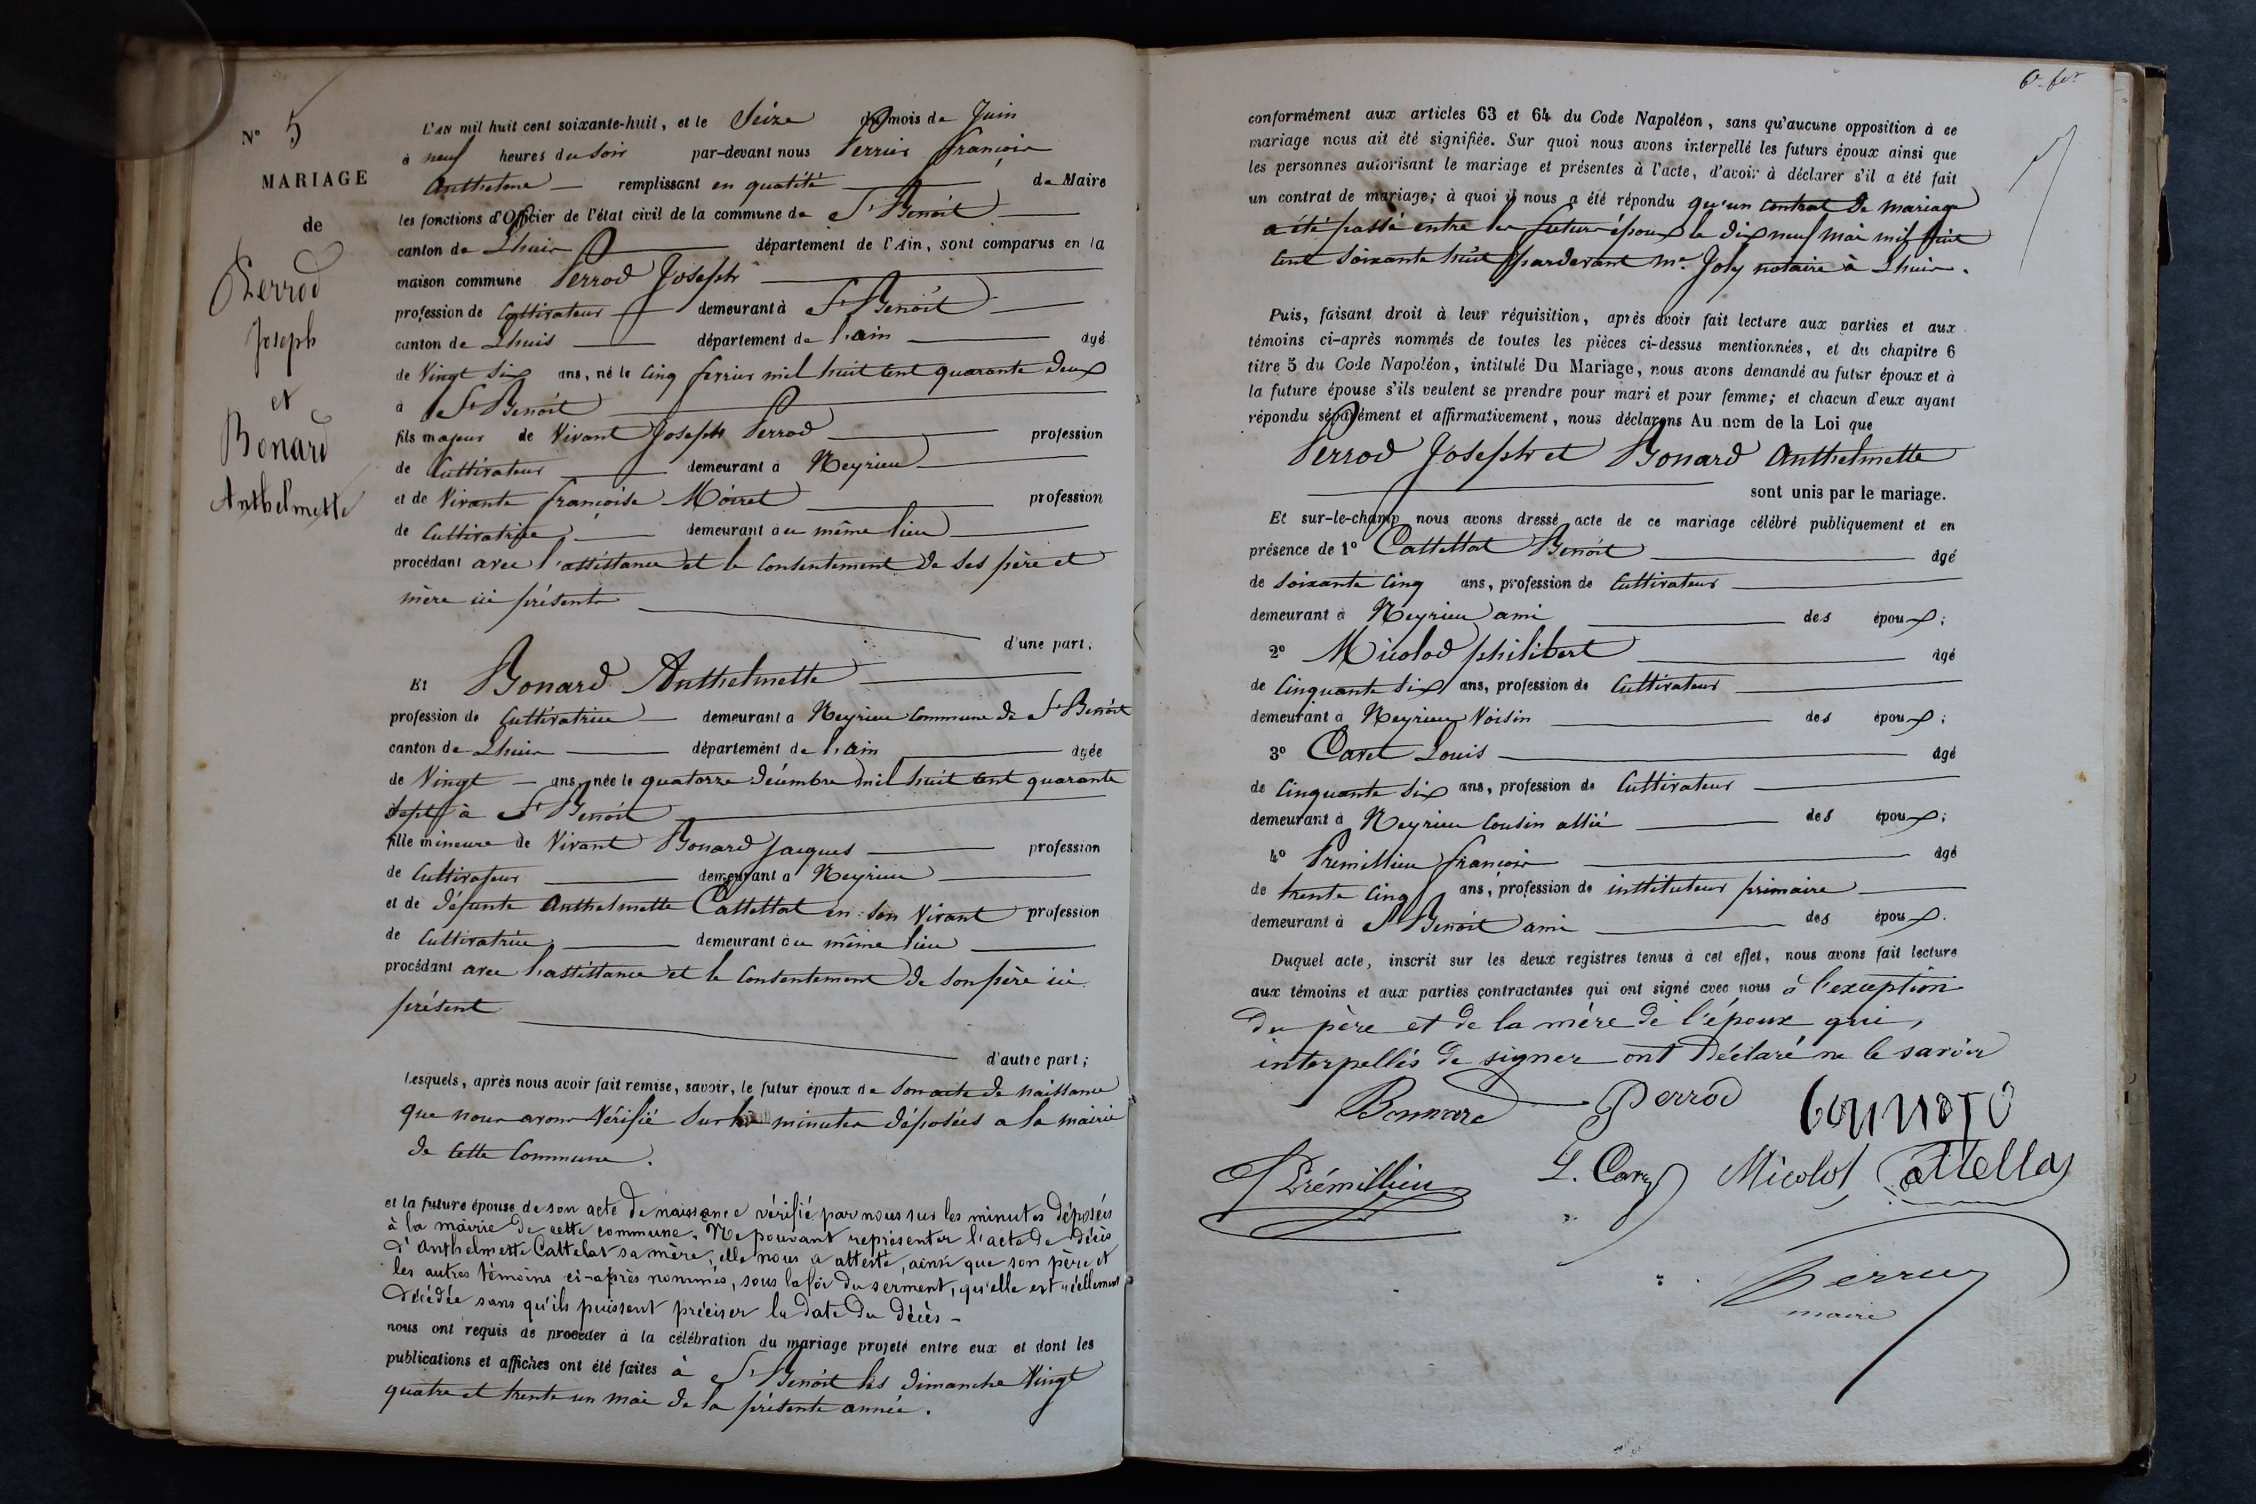 N° 5
MARIAGE
de
Perrod
Joseph
et
Bonard
Anthelmette
L'AN mil huit cent soixante-huit, et le Seize du mois de Juin
à neuf heures du Soir par-devant nous Perrier François
Anthelme remplissant en qualité de Maire
les fonctions d'Officier de l'état civil de la commune de St Benoît
canton de Lhuis département de l'Ain, sont comparus en la
maison commune Perrod Joseph
profession de Cultivateur demeurant à St Benoît
canton de Lhuis département de l'ain âgé
de Vingt Six ans, né le Cinq fevrier mil huit cent quarante deux
à St Benoît
fils majeur de Vivant Joseph Perrod profession
de Cultivateur demeurant à Neyrieu
et de Vivante françoise Moiret profession
de Cultivatrice demeurant au même lieu
procédant avec l'assistance et le Consentement de ses père et
mère ici présents
d'une part;
Et Bonard Anthelmette
profession de Cultivatrice demeurant à Neyrieu Commune de St Benoît
canton de Lhuis département de l'ain âgée
de Vingt ans, née le quatorze décembre mil huit cent quarante
Sept à St Benoît
fille mineure de Vivant Bonard Jacques profession
de Cultivateur demeurant à Neyrieu
et de défunte Anthelmette Cattellat en son Vivant profession
de Cultivatrice demeurant au même lieu
procédant avec l'assistance et le Consentement de son père ici
présent
d'autre part;
Lesquels, après nous avoir fait remise, savoir, le futur époux de Son acte de naissance
que nous avons Vérifié Sur les minutes déposées a la mairie
de cette Commune.
et la future épouse de son acte de naissance vérifié par nous sur les minutes déposées
à la mairie de cette commune. Ne pouvant représenter l'acte de décès
d'Anthelmette Cattelat sa mère, elle nous a attesté, ainsi que son père et
les autres témoins ci-après nommés, sous la foi du serment, qu'elle est réellement
décédée sans qu'ils puissent préciser la date du décès -
nous ont requis de procéder à la célébration du mariage projeté entre eux et dont les
publications et affiches ont été faites à St Benoît les dimanche Vingt
quatre et trente un mai de la présente année.
conformément aux articles 63 et 64 du Code Napoléon, sans qu'aucune opposition à ce
mariage nous ait été signifiée. Sur quoi nous avons interpellé les futurs époux ainsi que
les personnes autorisant le mariage et présentes à l'acte, d'avoir à déclarer s'il a été fait
un contrat de mariage; à quoi il nous a été répondu qu'un contrat de mariage
a été passé entre les futurs époux le dix neuf mai mil huit
cent Soixante huit pardevant Me Joly notaire à Lhuis.
Puis, faisant droit à leur réquisition, après avoir fait lecture aux parties et aux
témoins ci-après nommés de toutes les pièces ci-dessus mentionnées, et du chapitre 6
titre 5 du Code Napoléon, intitulé Du Mariage, nous avons demandé au futur époux et à
la future épouse s'ils veulent se prendre pour mari et pour femme; et chacun d'eux ayant
répondu séparément et affirmativement, nous déclarons Au nom de la Loi que
Perrod Joseph et Bonard Anthelmette
sont unis par le mariage.
Et sur-le-champ nous avons dressé acte de ce mariage célébré publiquement et en
présence de 1° Cattellat Benoît âgé
de Soixante Cinq ans, profession de Cultivateur
demeurant à Neyrieu ami des époux;
2° Micolod philibert âgé
de Cinquante Six ans, profession de Cultivateur
demeurant à Neyrieu Voisin des époux;
3° Caret Louis âgé
de Cinquante Six ans, profession de Cultivateur
demeurant à Neyrieu Cousin allié des époux;
4° Premillieu françois âgé
de trente Cinq ans, profession de instituteur primaire
demeurant à St Benoît ami des époux.
Duquel acte, inscrit sur les deux registres tenus à cet effet, nous avons fait lecture
aux témoins et aux parties contractantes qui ont signé avec nous à l'exception
du père et de la mère de l'époux qui,
interpellés de signer ont déclaré ne le savoir
Bonnard Perrod bonnard
Prémillieu L. Caret Micolod Cattellat
Perrier
maire